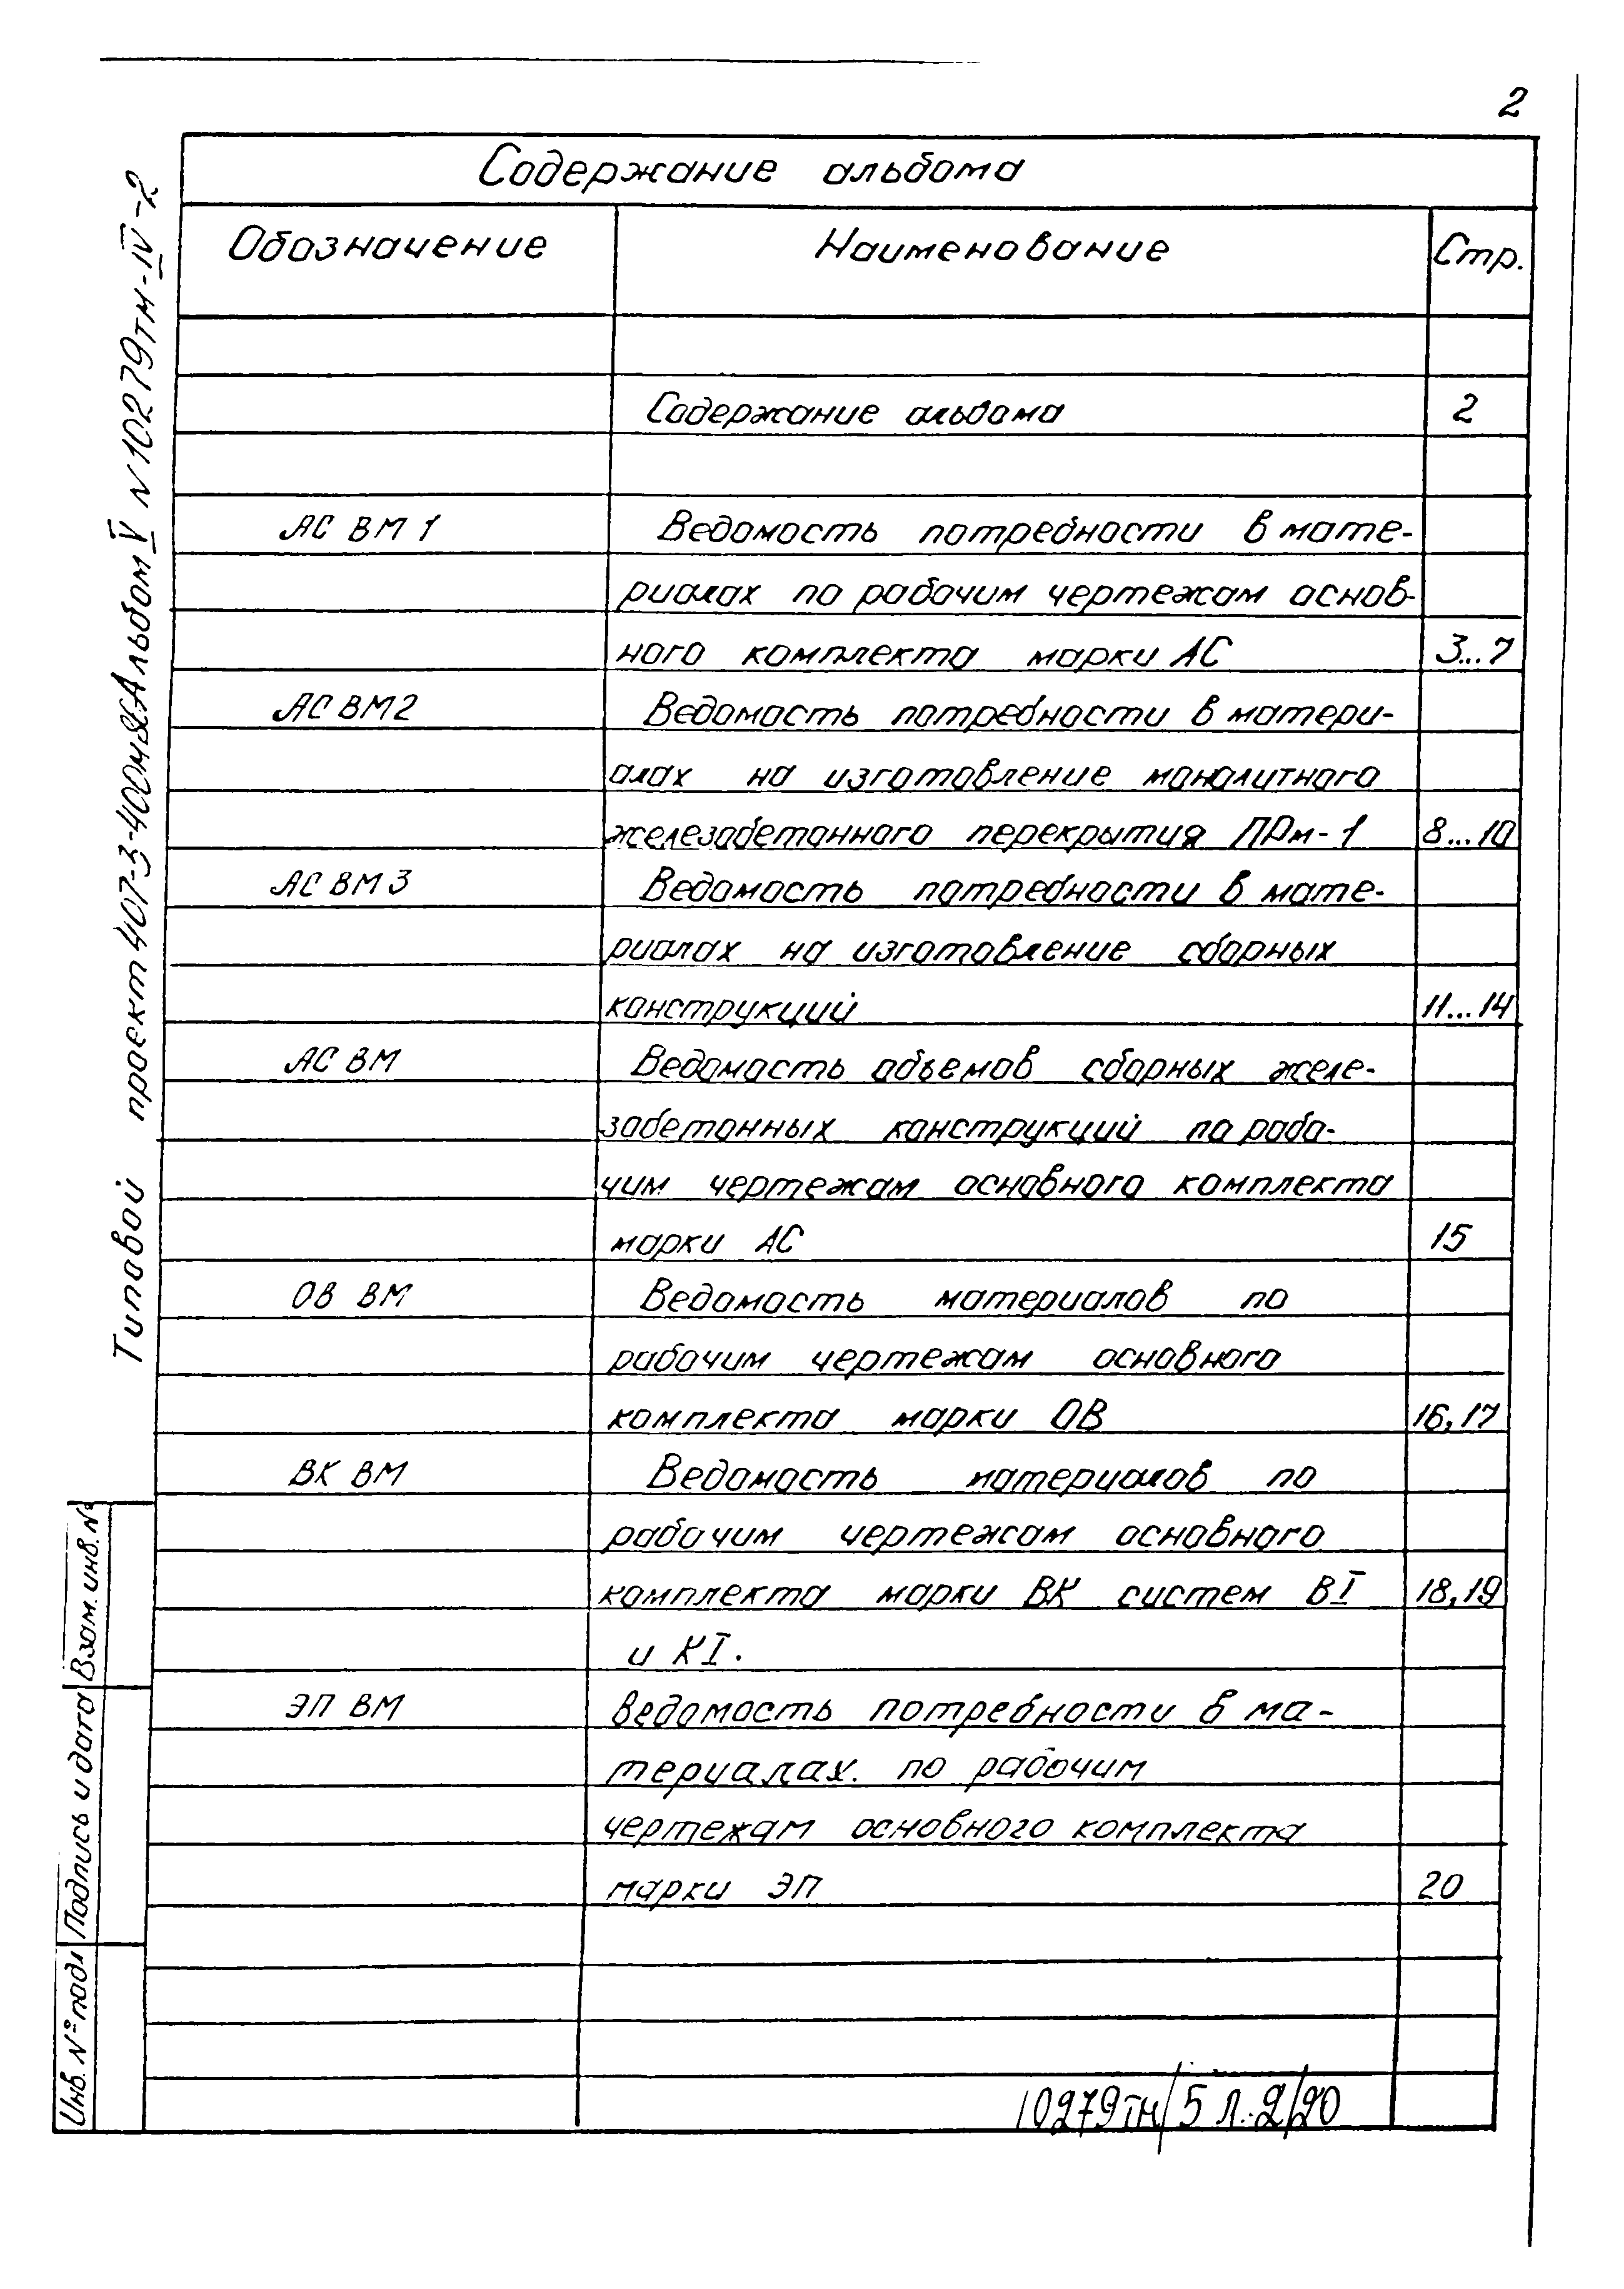 2
Содержание альбома
Обозначение Наименование Стр.
Содержание альбома 2
АС ВМ 1 Ведомость потребности в мате-
риалах по рабочим чертежам основ-
ного комплекта марки АС 3...7
АС ВМ2 Ведомость потребности в матери-
алах на изготовление монолитного
железобетонного перекрытия ПРм-1 8...10
АС ВМ 3 Ведомость потребности в мате-
риалах на изготовление сборных
конструкций 11...14
АС ВМ Ведомость объемов сборных желе-
зобетонных конструкций по рабо-
чим чертежам основного комплекта
марки АС 15
ОВ ВМ Ведомость материалов по
рабочим чертежам основного
комплекта марки ОВ 16,17
ВК ВМ Ведомость материалов по
рабочим чертежам основного
комплекта марки ВК систем ВI 18,19
и КI.
ЭП ВМ Ведомость потребности в ма-
териалах. по рабочим
чертежам основного комплекта
марки ЭП 20
10279тм/5 л.2/20
Типовой проект 407-3-400м86 Альбом V N 10279тм-IV-2
Взам. инв. №
Подпись и дата
Инв. № подл